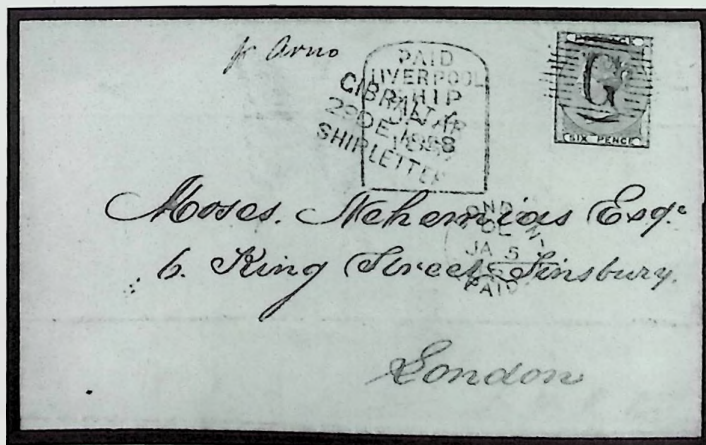 pr Arno
PAID
LIVERPOOL
SHIP
GIBRALTAR
29 DE 1858
SHIP LETTER
POSTAGE
G
SIX PENCE
Moses. Nehemias Esqre
6. King Street Finsbury.
JA 5
PAID
London